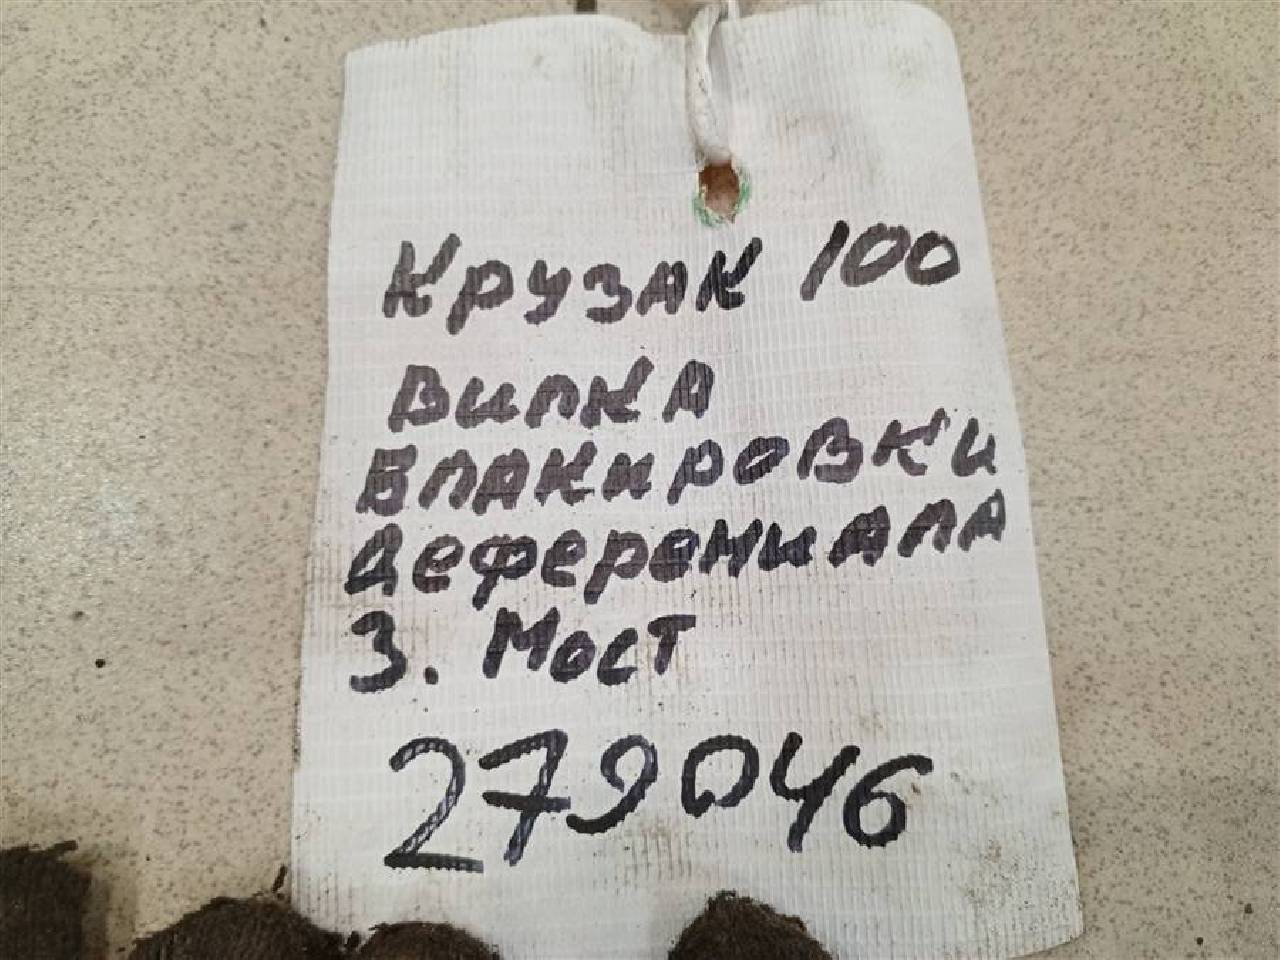 Крузак 100
Вилка
Блакировки
Деферениала
З. Мост
279046